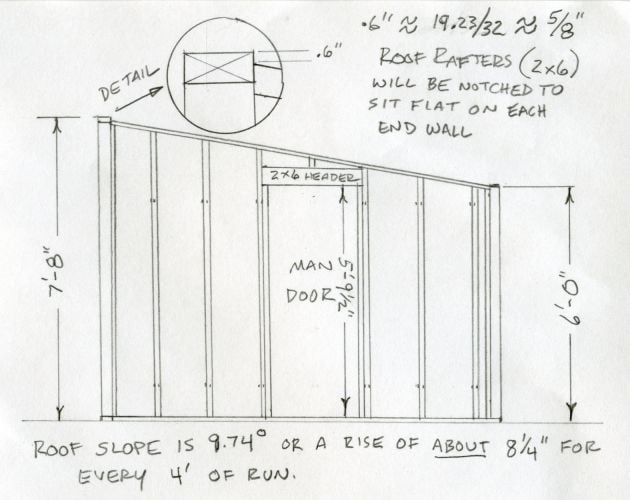 .6" ≈ 19.23/32 ≈ 5/8"
ROOF RAFTERS (2x6)
WILL BE NOTCHED TO
SIT FLAT ON EACH
END WALL
.6"
DETAIL
2x6 HEADER
7'-8"
MAN
DOOR
5'-9 1/2"
6'-0"
ROOF SLOPE IS 9.74° OR A RISE OF ABOUT 8 1/4" FOR
EVERY 4' OF RUN.